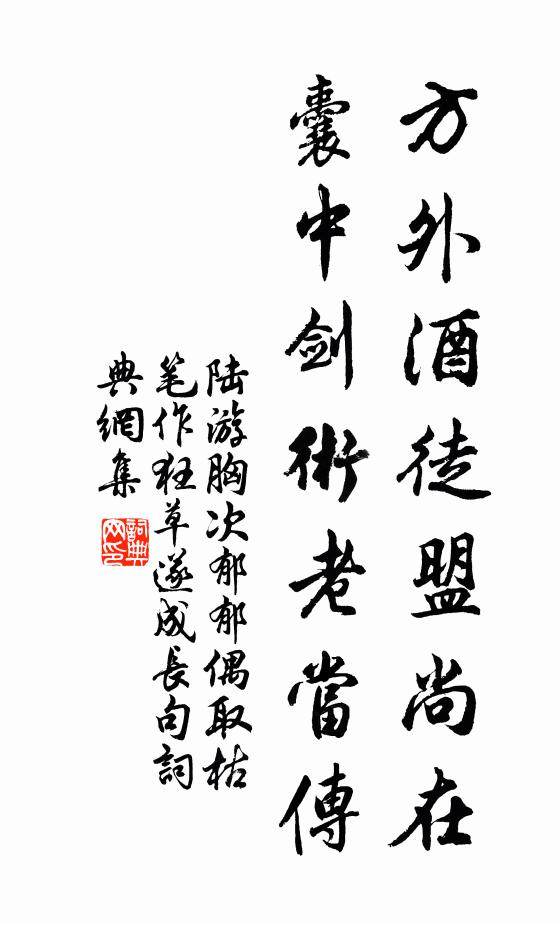 方外酒徒盟尚在
囊中劍術老當傳
陆游胸次郁郁偶取枯
笔作狂草遂成長句詞
典網集
詞典
网印